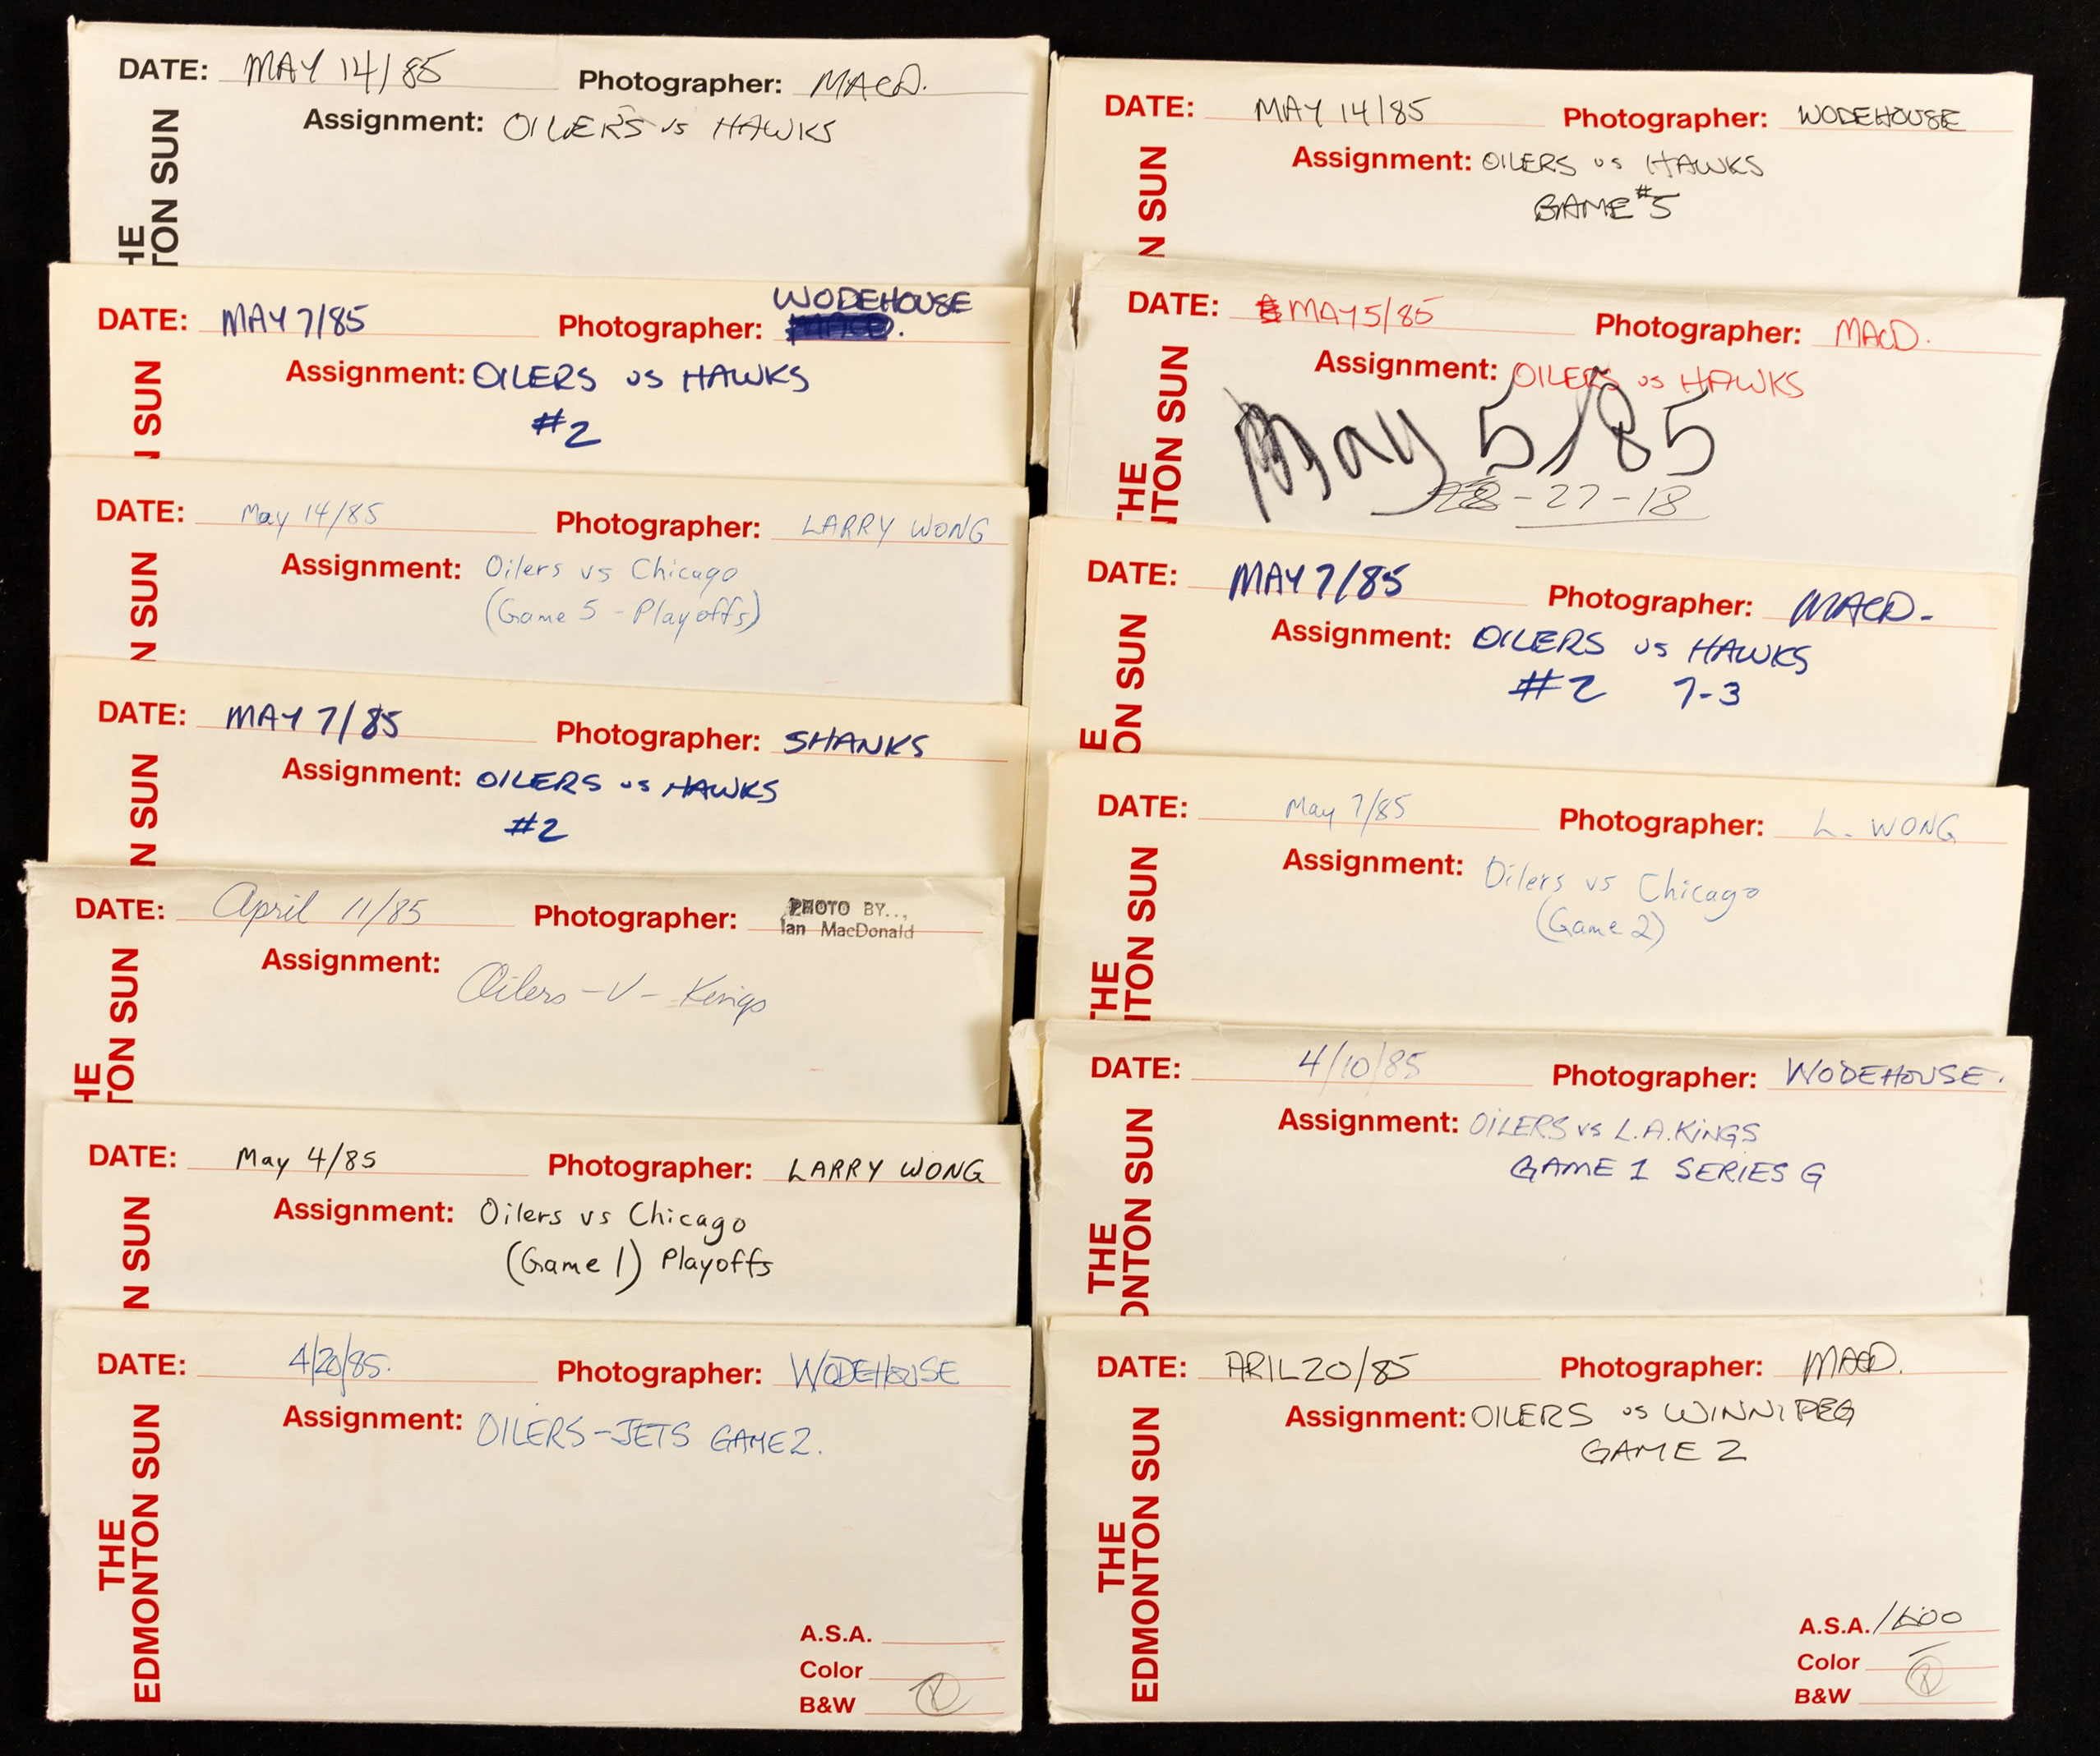 DATE: MAY 14/85 Photographer: MACD.
Assignment: OILERS vs HAWKS
HE
TON SUN
DATE: MAY 7/85 Photographer: WODEHOUSE
Assignment: OILERS vs HAWKS
#2
N SUN
DATE: May 14/85 Photographer: LARRY WONG
Assignment: Oilers vs Chicago
(Game 5 - Playoffs)
N SUN
DATE: MAY 7/85 Photographer: SHANKS
Assignment: OILERS vs HAWKS
#2
N SUN
DATE: April 11/85 Photographer: PHOTO BY...,
Ian MacDonald
Assignment: Oilers -V- Kings
HE
TON SUN
DATE: May 4/85 Photographer: LARRY WONG
Assignment: Oilers vs Chicago
(Game 1) Playoffs
N SUN
DATE: 4/20/85. Photographer: WODEHOUSE
Assignment: OILERS-JETS GAME 2.
THE
EDMONTON SUN
A.S.A.
Color
B&W
DATE: MAY 14/85 Photographer: WODEHOUSE
Assignment: OILERS vs HAWKS
GAME #5
N SUN
DATE: MAY 5/85 Photographer: MACD.
Assignment: OILERS vs HAWKS
May 5/85
-27-18
THE
NTON SUN
DATE: MAY 7/85 Photographer: MACD-
Assignment: OILERS vs HAWKS
#2 7-3
E
ON SUN
DATE: May 7/85 Photographer: L. WONG
Assignment: Oilers vs Chicago
(Game 2)
THE
NTON SUN
DATE: 4/10/85 Photographer: WODEHOUSE.
Assignment: OILERS vs L.A. KINGS
GAME 1 SERIES G
THE
ONTON SUN
DATE: ARIL 20/85 Photographer: MACD.
Assignment: OILERS vs WINNIPEG
GAME 2
THE
EDMONTON SUN
A.S.A. 1600
Color
B&W